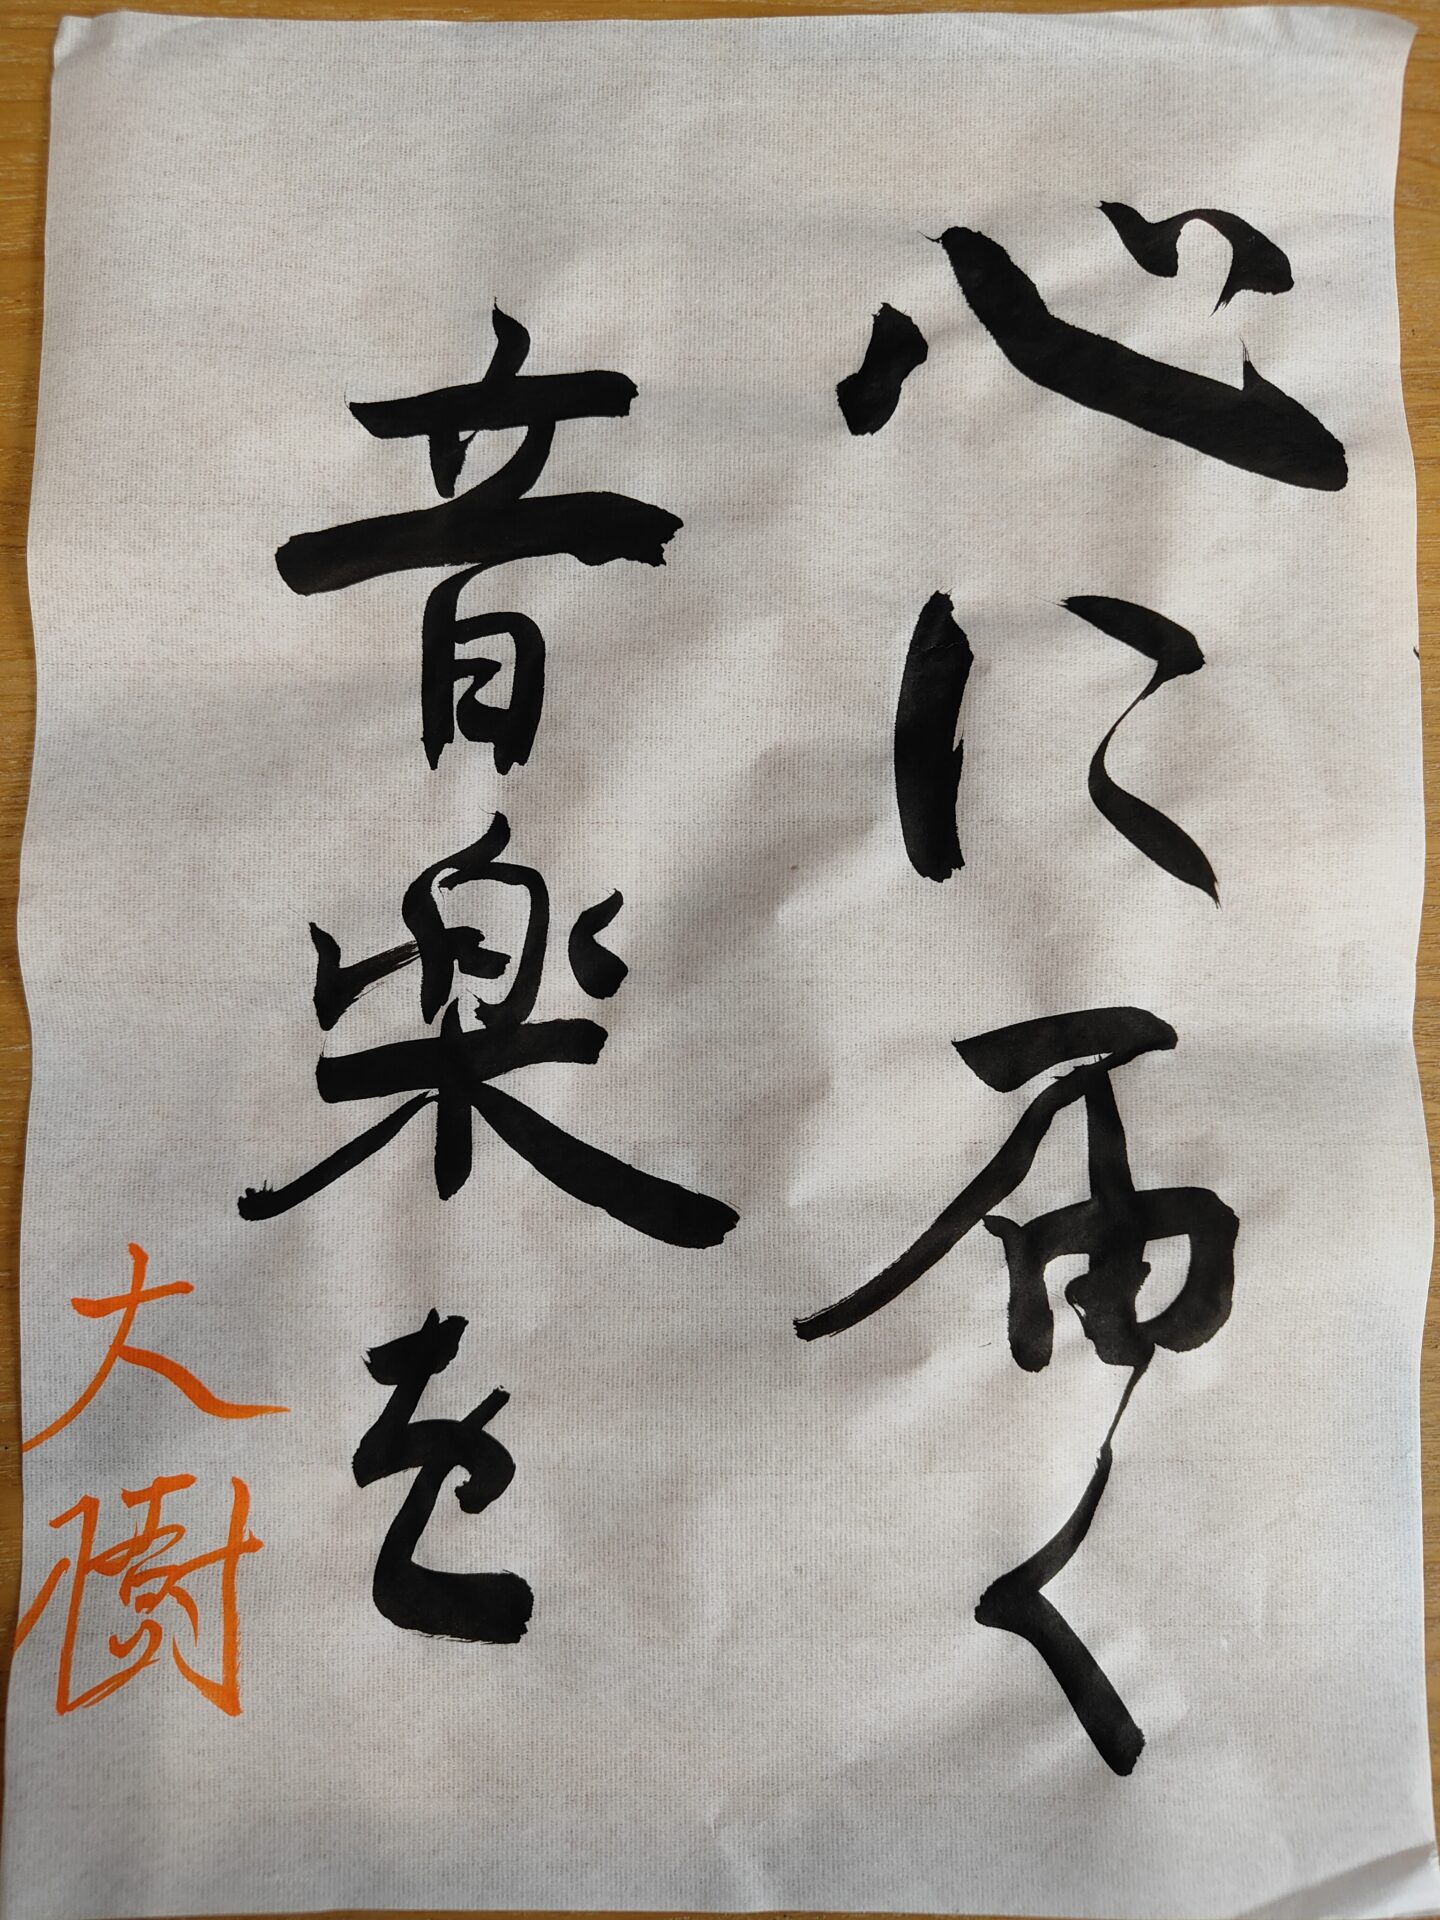 心に届く
音楽を
大樹